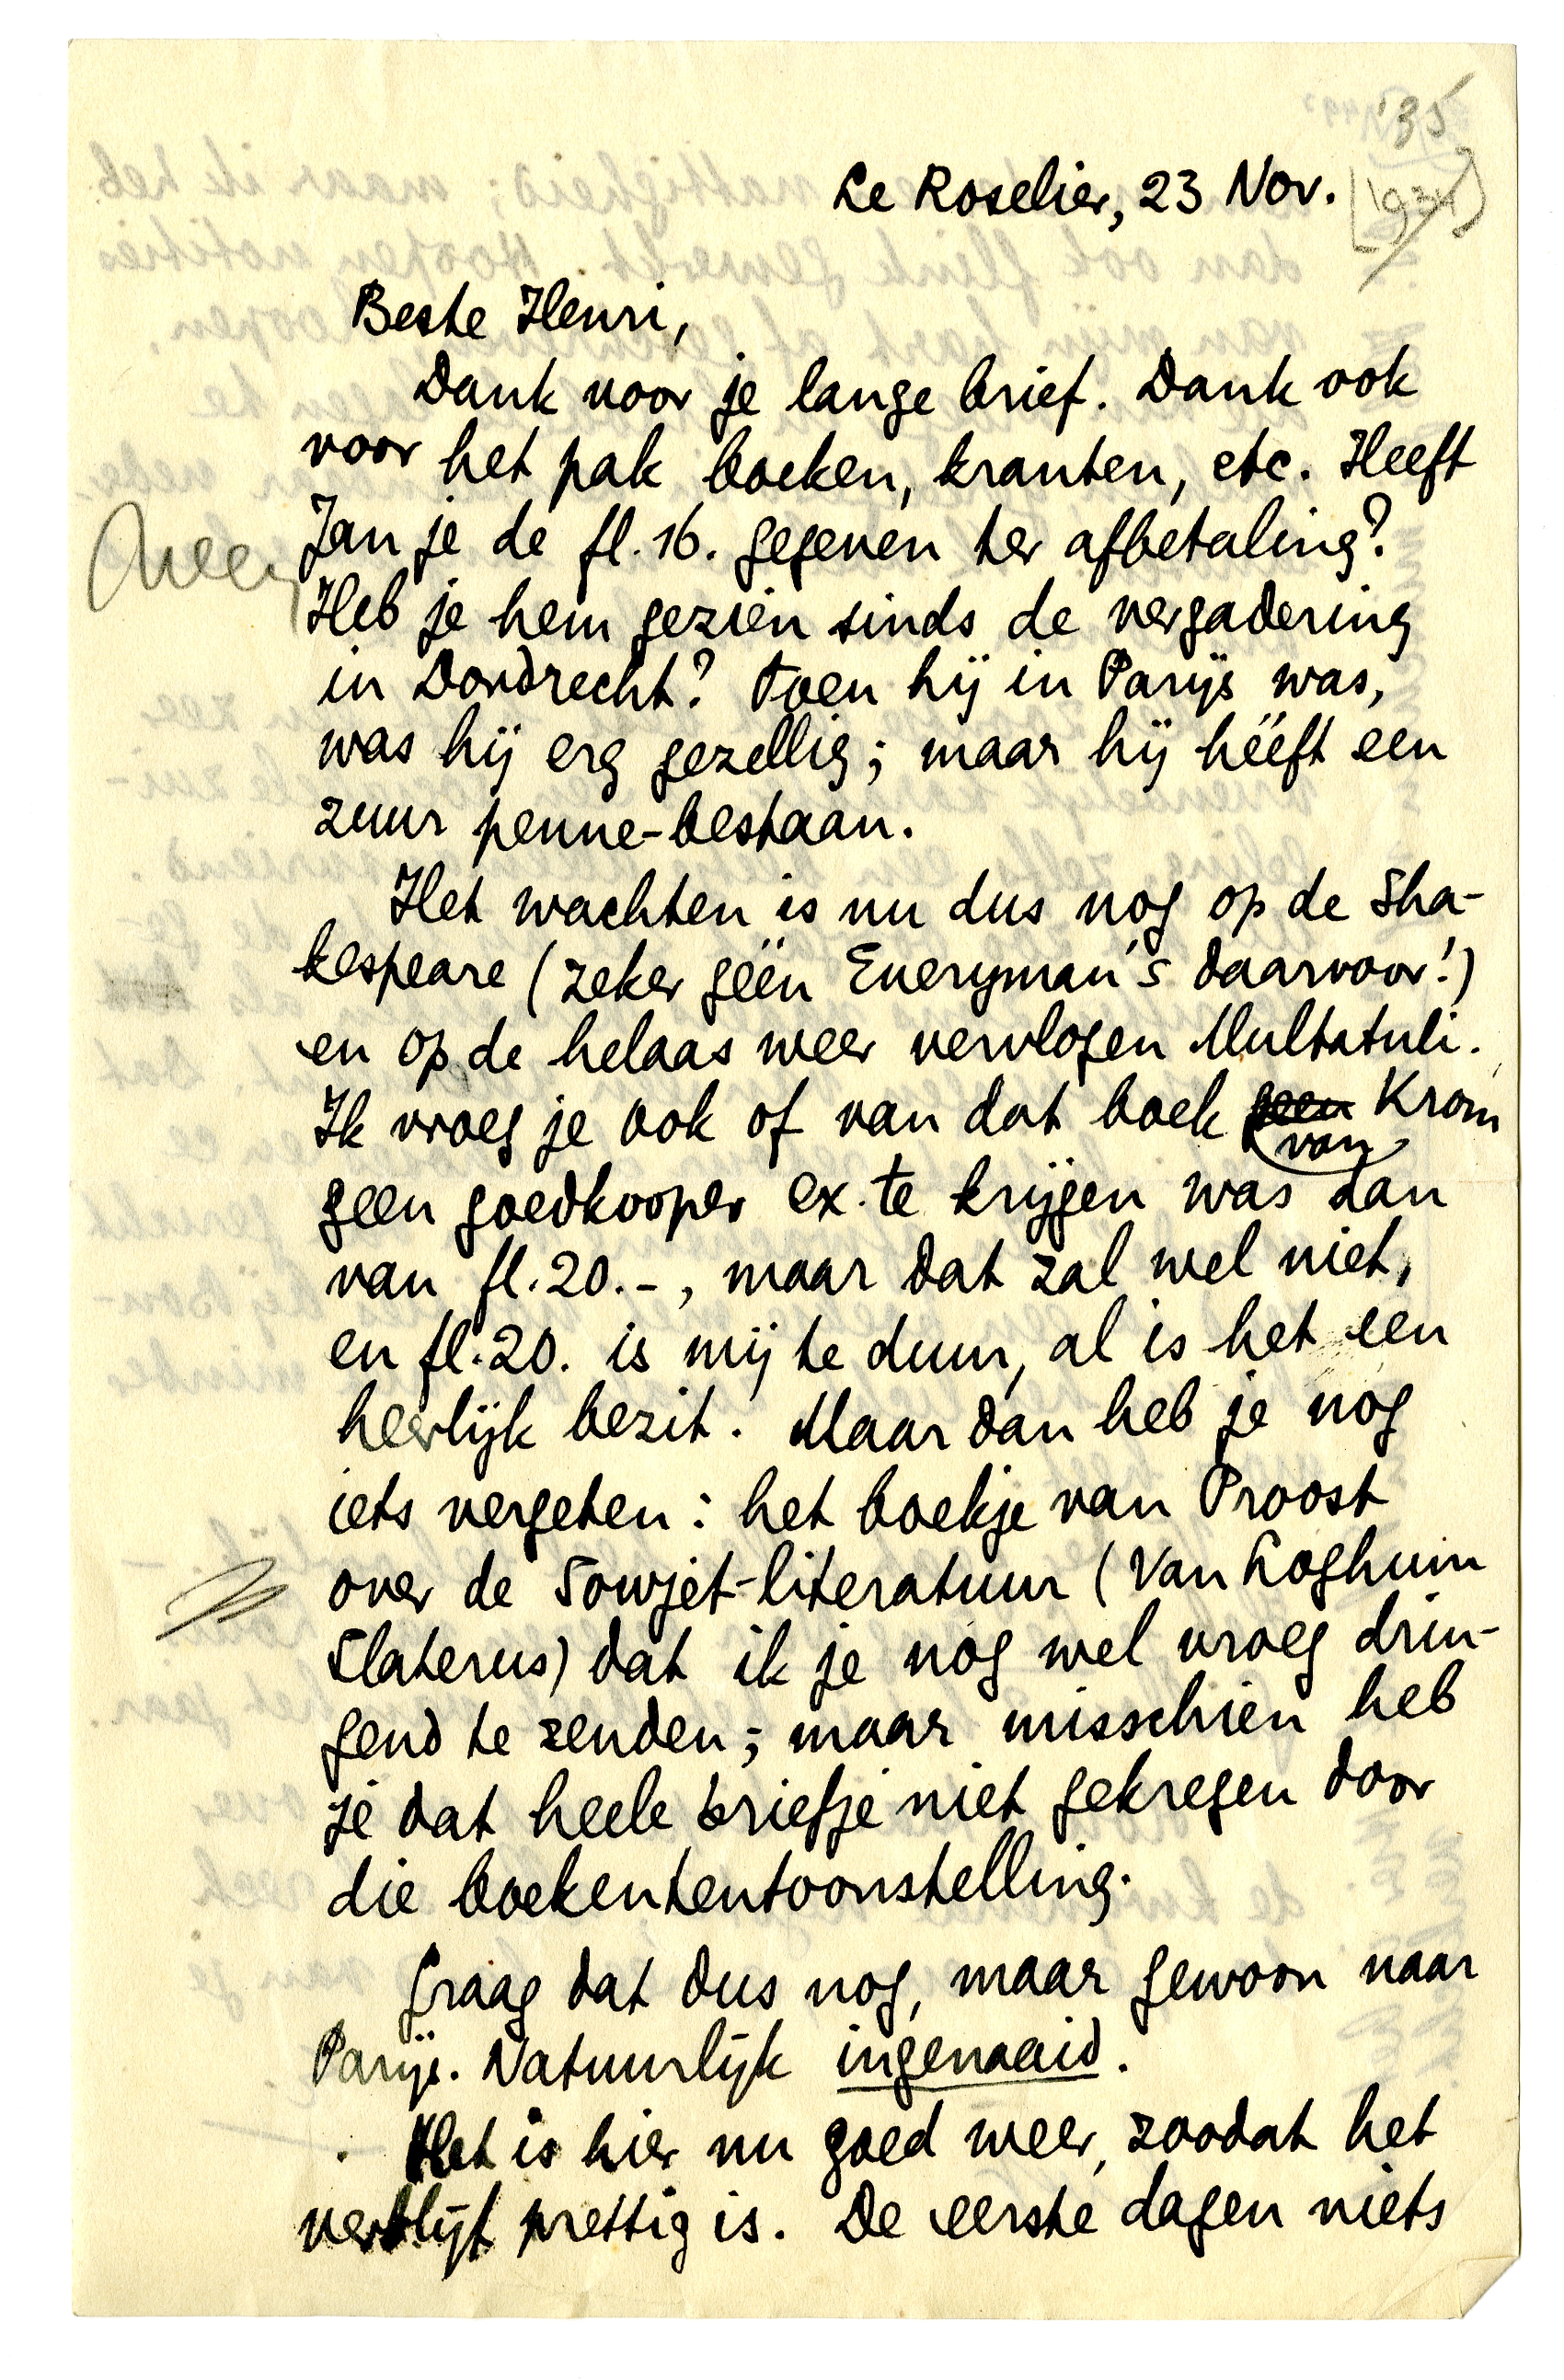 '35
Le Roselier, 23 Nov. [1934]
Beste Henri,
Dank voor je lange brief. Dank ook
voor het pak boeken, kranten, etc. Heeft
Neen
Jan je de fl. 16. gegeven ter afbetaling?
Heb je hem gezien sinds de vergadering
in Dordrecht? Toen hij in Parijs was,
was hij erg gezellig; maar hij hééft een
zuur penne-bestaan.
Het wachten is nu dus nog op de Sha-
kespeare (zeker géén Everyman's daarvoor!)
en op de helaas weer vervlogen Multatuli.
Ik vroeg je ook of van dat boek geen van Krom
geen goedkooper ex. te krijgen was dan
van fl. 20.-, maar dat zal wel niet,
en fl. 20. is mij te duur, al is het een
heerlijk bezit. Maar dan heb je nog
iets vergeten: het boekje van Proost
over de Sowjet-literatuur (Van Loghum
Slaterus) dat ik je nog wel vroeg drin-
gend te zenden; maar misschien heb
je dat heele briefje niet gekregen door
die boekententoonstelling.
Graag dat dus nog, maar gewoon naar
Parijs. Natuurlijk ingenaaid.
Het is hier nu goed weer, zoodat het
verblijf prettig is. De eerste dagen niets